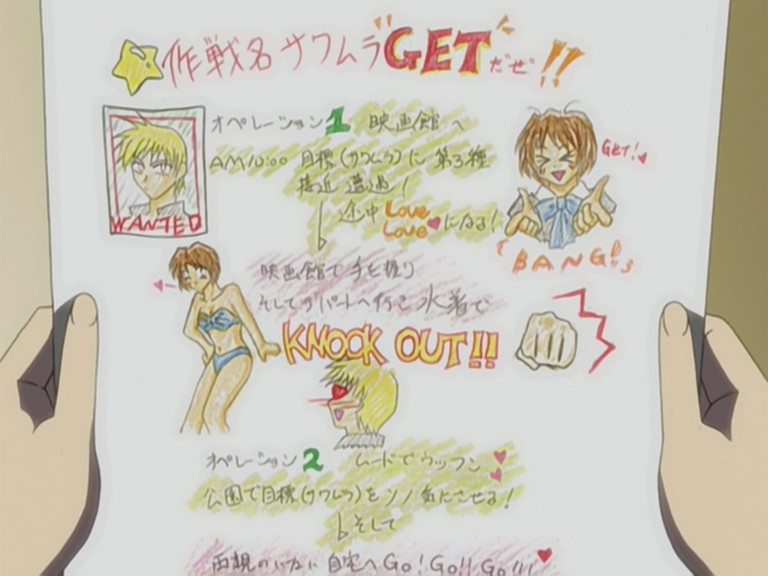 作戦名サワムラGETだぜ!!
オペレーション1 映画館へ
AM10:00 目標(サワムラ)に第3種
接近遭遇!
GET!
途中Love Love♥になる!
WANTED
BANG!!
映画館で手を握り
そしてデパートへ行き水着で
KNOCK OUT!!
オペレーション2 ムードでウッフン♥
公園で目標(サワムラ)をソノ気にさせる!
そして
両親のいない自宅へGo!Go!!Go!!!♥